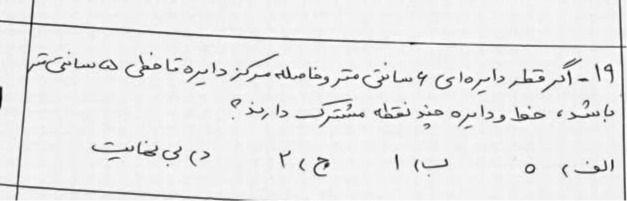 ۱۹- اگر قطر دایره‌ای ۶ سانتی متر و فاصله مرکز دایره تا خطی ۵ سانتی متر
باشد، خط و دایره چند نقطه مشترک دارند؟
الف) ۰ ب) ۱ ج) ۲ د) بی نهایت